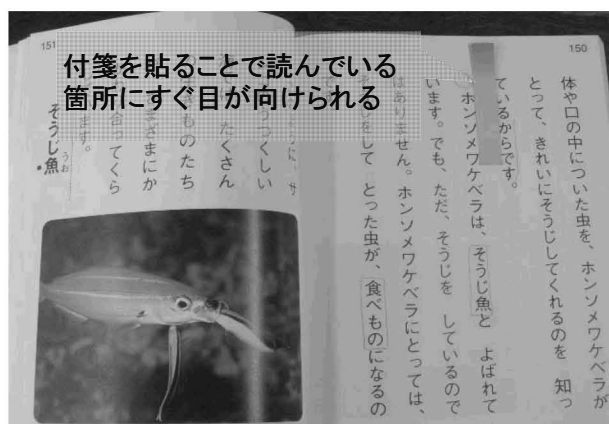 付箋を貼ることで読んでいる
箇所にすぐ目が向けられる
150
体や口の中についた虫を、ホンソメワケベラが
とって、きれいにそうじしてくれるのを 知っ
ているからです。
ホンソメワケベラは、そうじ魚と よばれて
います。でも、ただ、そうじを しているので
はありません。ホンソメワケベラにとっては、
じをして とった虫が、食べものになるの
151
つくしい
たくさん
きものたち
まざまにか
合ってくら
ます。
そうじ魚
うお